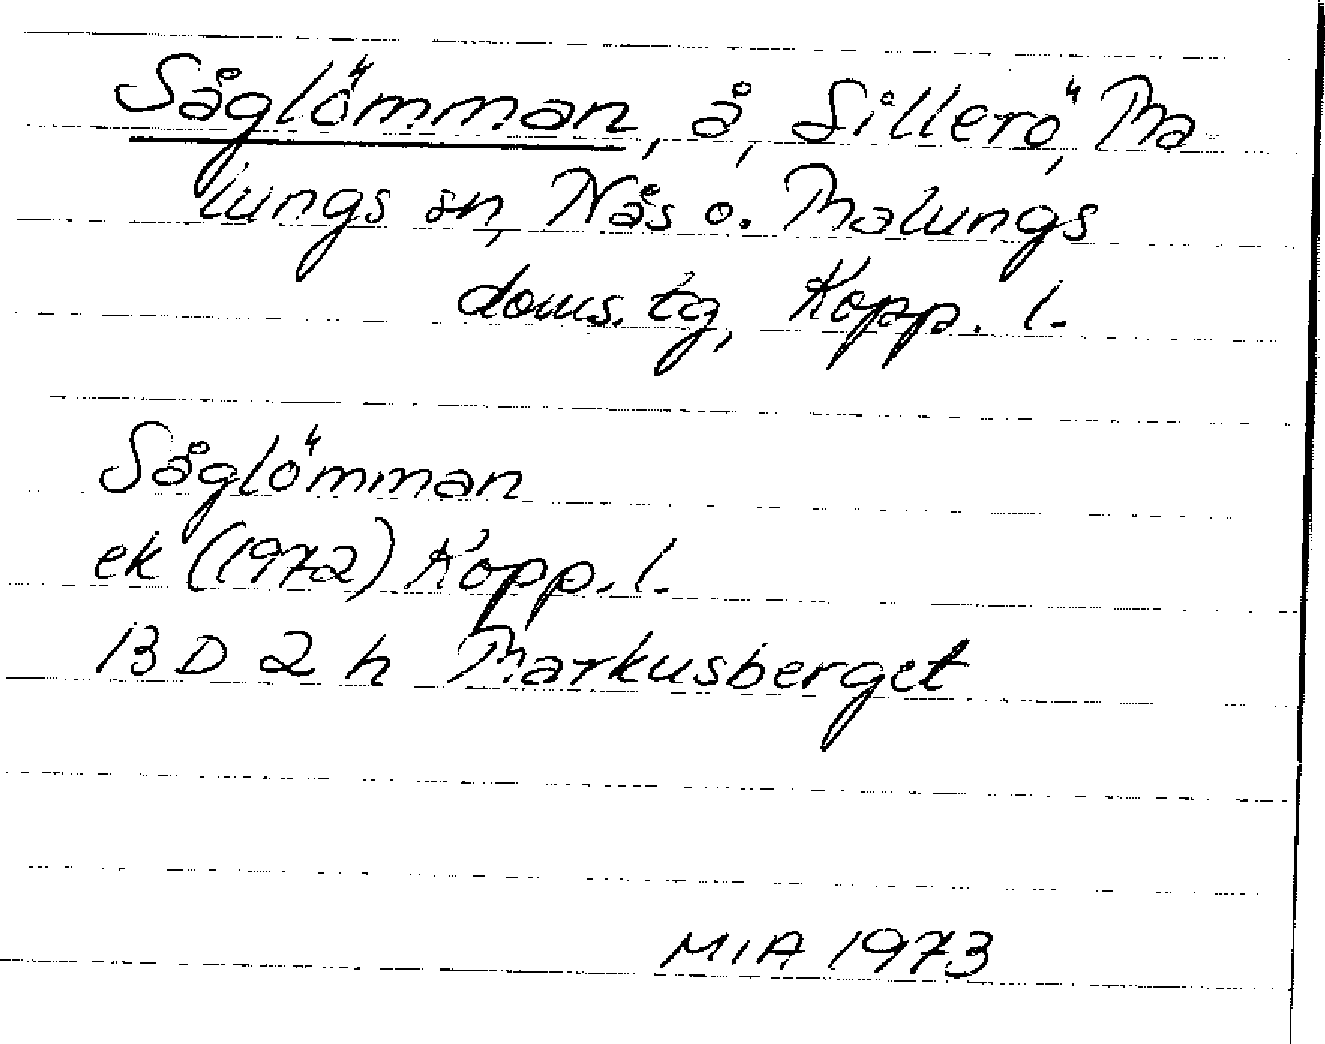 Såglömman, å, Sillerö, Ma-
lungs sn, Nås o. Malungs
doms. tg, Kopp. l.
Såglömman
ek (1972) Kopp. l.
13 D 2 h Markusberget
MIA 1973